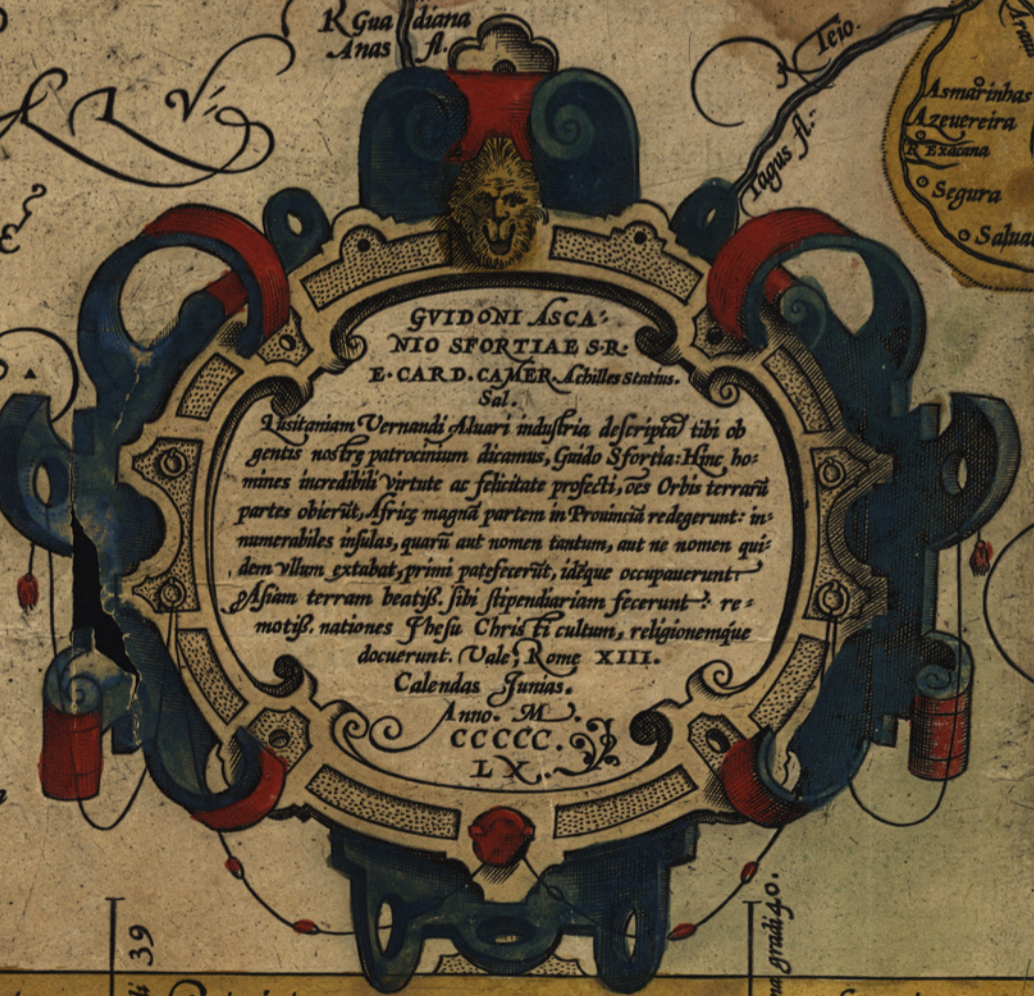 R Gua diana
Anas fl.
Teio.
Tagus fl.
Asmarinhas
Azeuereira
R Exacana
Segura
GVIDONI ASCA-
NIO SFORTIAE S·R·
E·CARD.CAMER. Achilles Statius.
Sal.
Lusitaniam Vernandi Aluari industria descriptā tibi ob
gentis nostrę patrocinium dicamus, Guido Sfortia: Hinc ho-
mines incredibili virtute ac felicitate profecti, oēs Orbis terrarū
partes obierūt, Africę magnā partem in Prouinciā redegerunt: in-
numerabiles insulas, quarū aut nomen tantum, aut ne nomen qui-
dem vllum extabat, primi patefecerūt, idēque occupauerunt:
Asiam terram beatiß. sibi stipendiariam fecerunt: re-
motiß. nationes Jhesu Christi cultum, religionemque
docuerunt. Vale, Romę XIII.
Calendas Junias.
Anno. M.
CCCCC.
LX.
39
gradi 40.